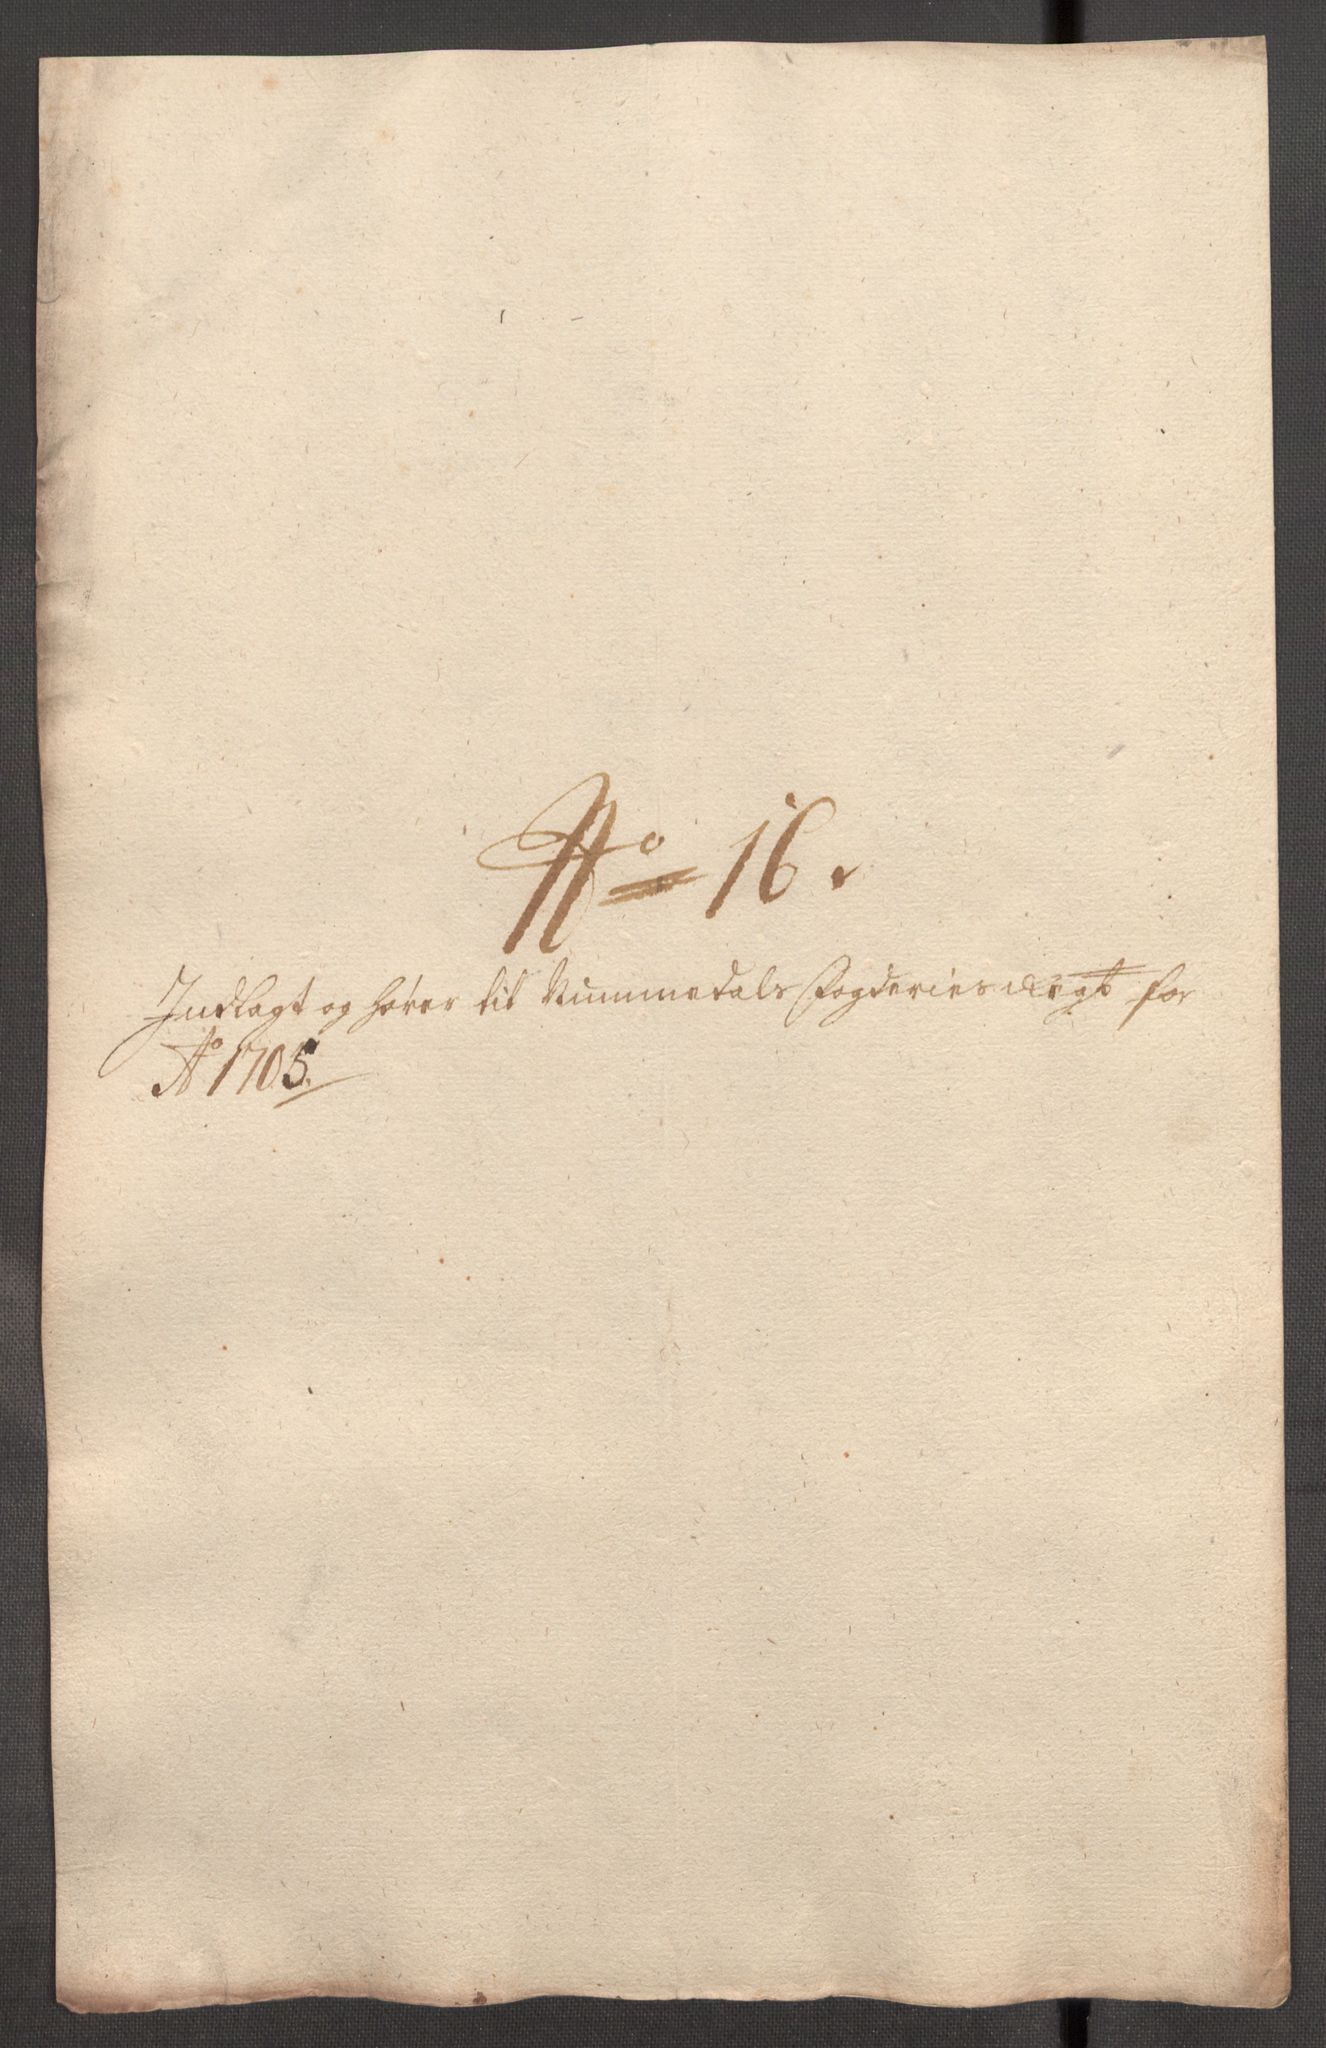 No 16.
Indlagt og hører til Nummedals Fogderies Regt for
Ao 1705.